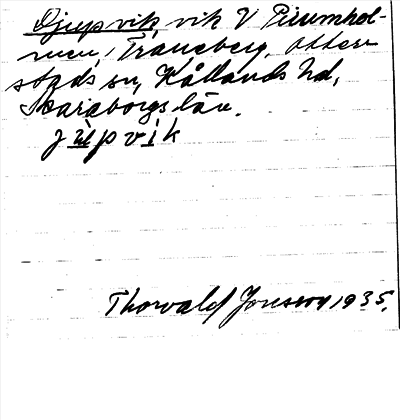 Djupvik, vik V Pirumhol-
men, Traneberg, Otter-
stads sn, Kållands hd,
Skaraborgs län.
jupvik
Thorvald Jonsson 1935.